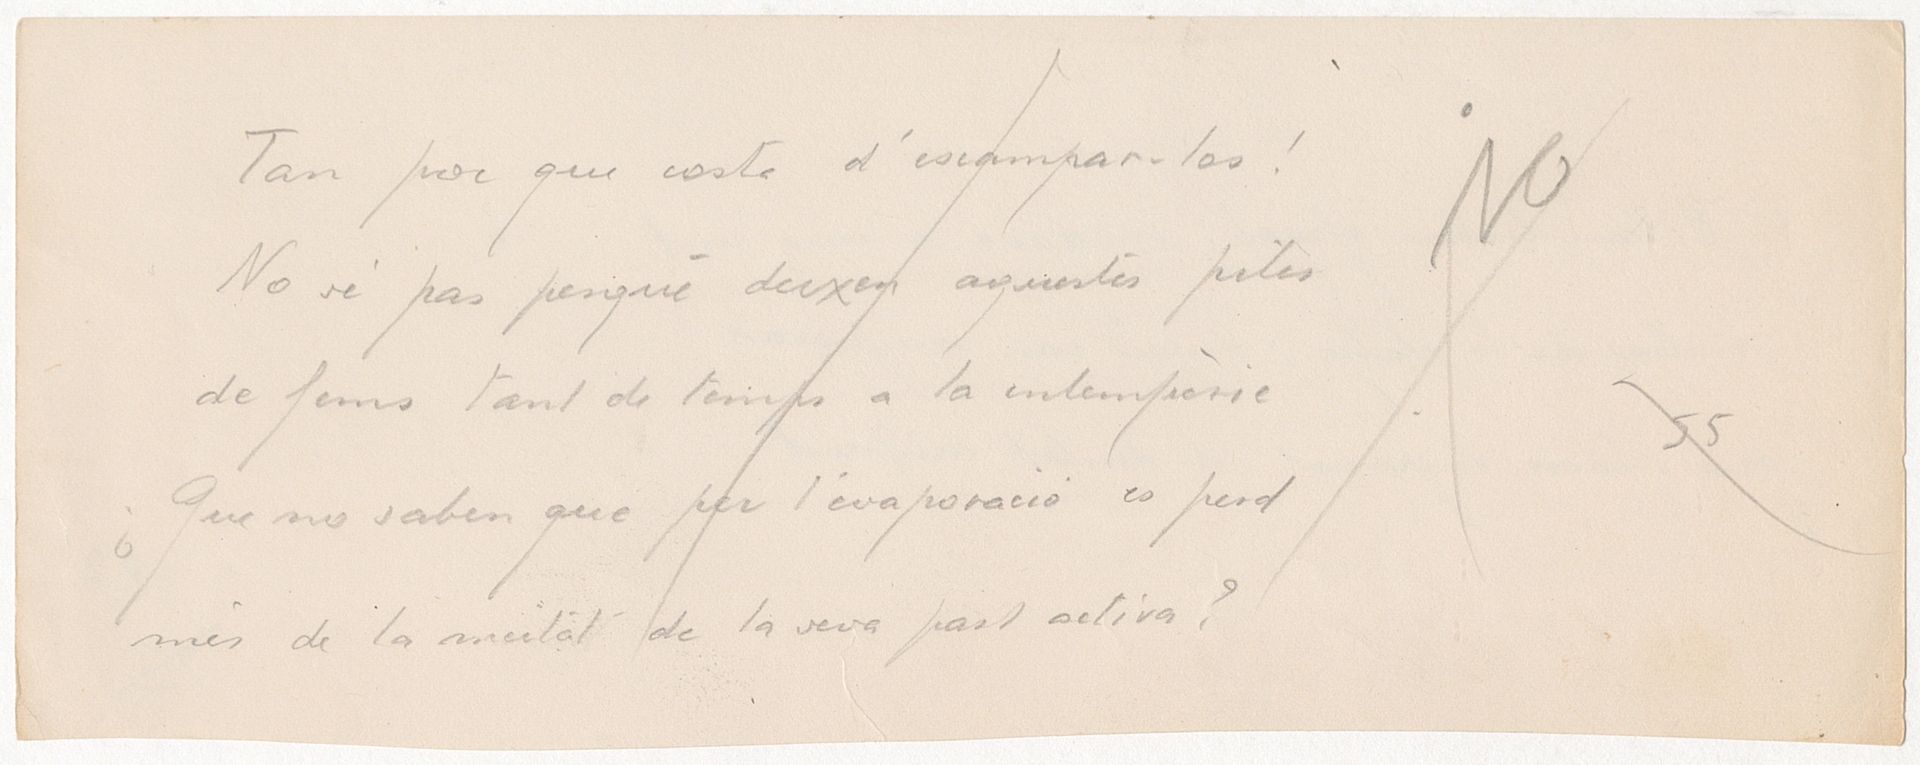 Tan poc que costa d'escampar-los!
NO
No sé pas perquè deixen aquestes piles
de fems tant de temps a la intempèrie
55
¿Que no saben que per l'evaporació es perd
més de la meitat de la seva part activa?